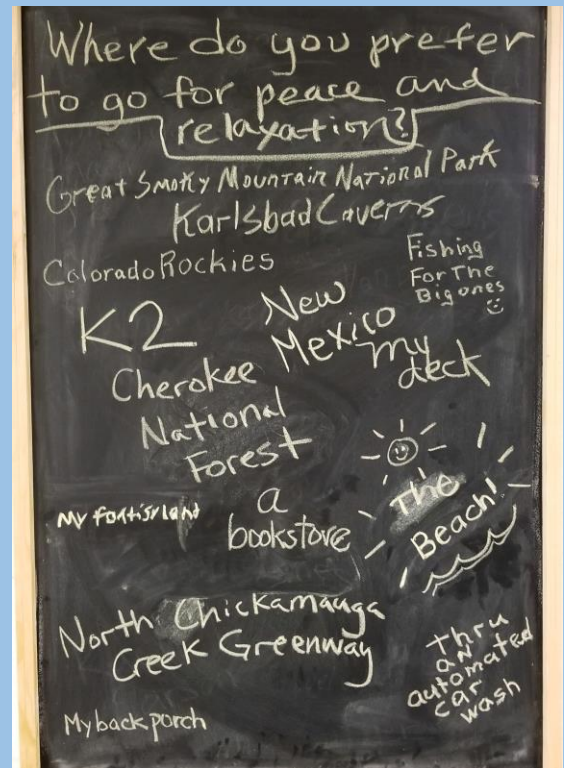 Where do you prefer
to go for peace and
relaxation?
Great Smoky Mountain National Park
Karlsbad Caverns
Colorado Rockies
Fishing
For The
Big ones
K2
New
Mexico
my
deck
Cherokee
National
Forest
The
Beach!
My
a
bookstore
North Chickamauga
Creek Greenway
thru
an
automated
car
wash
My back porch